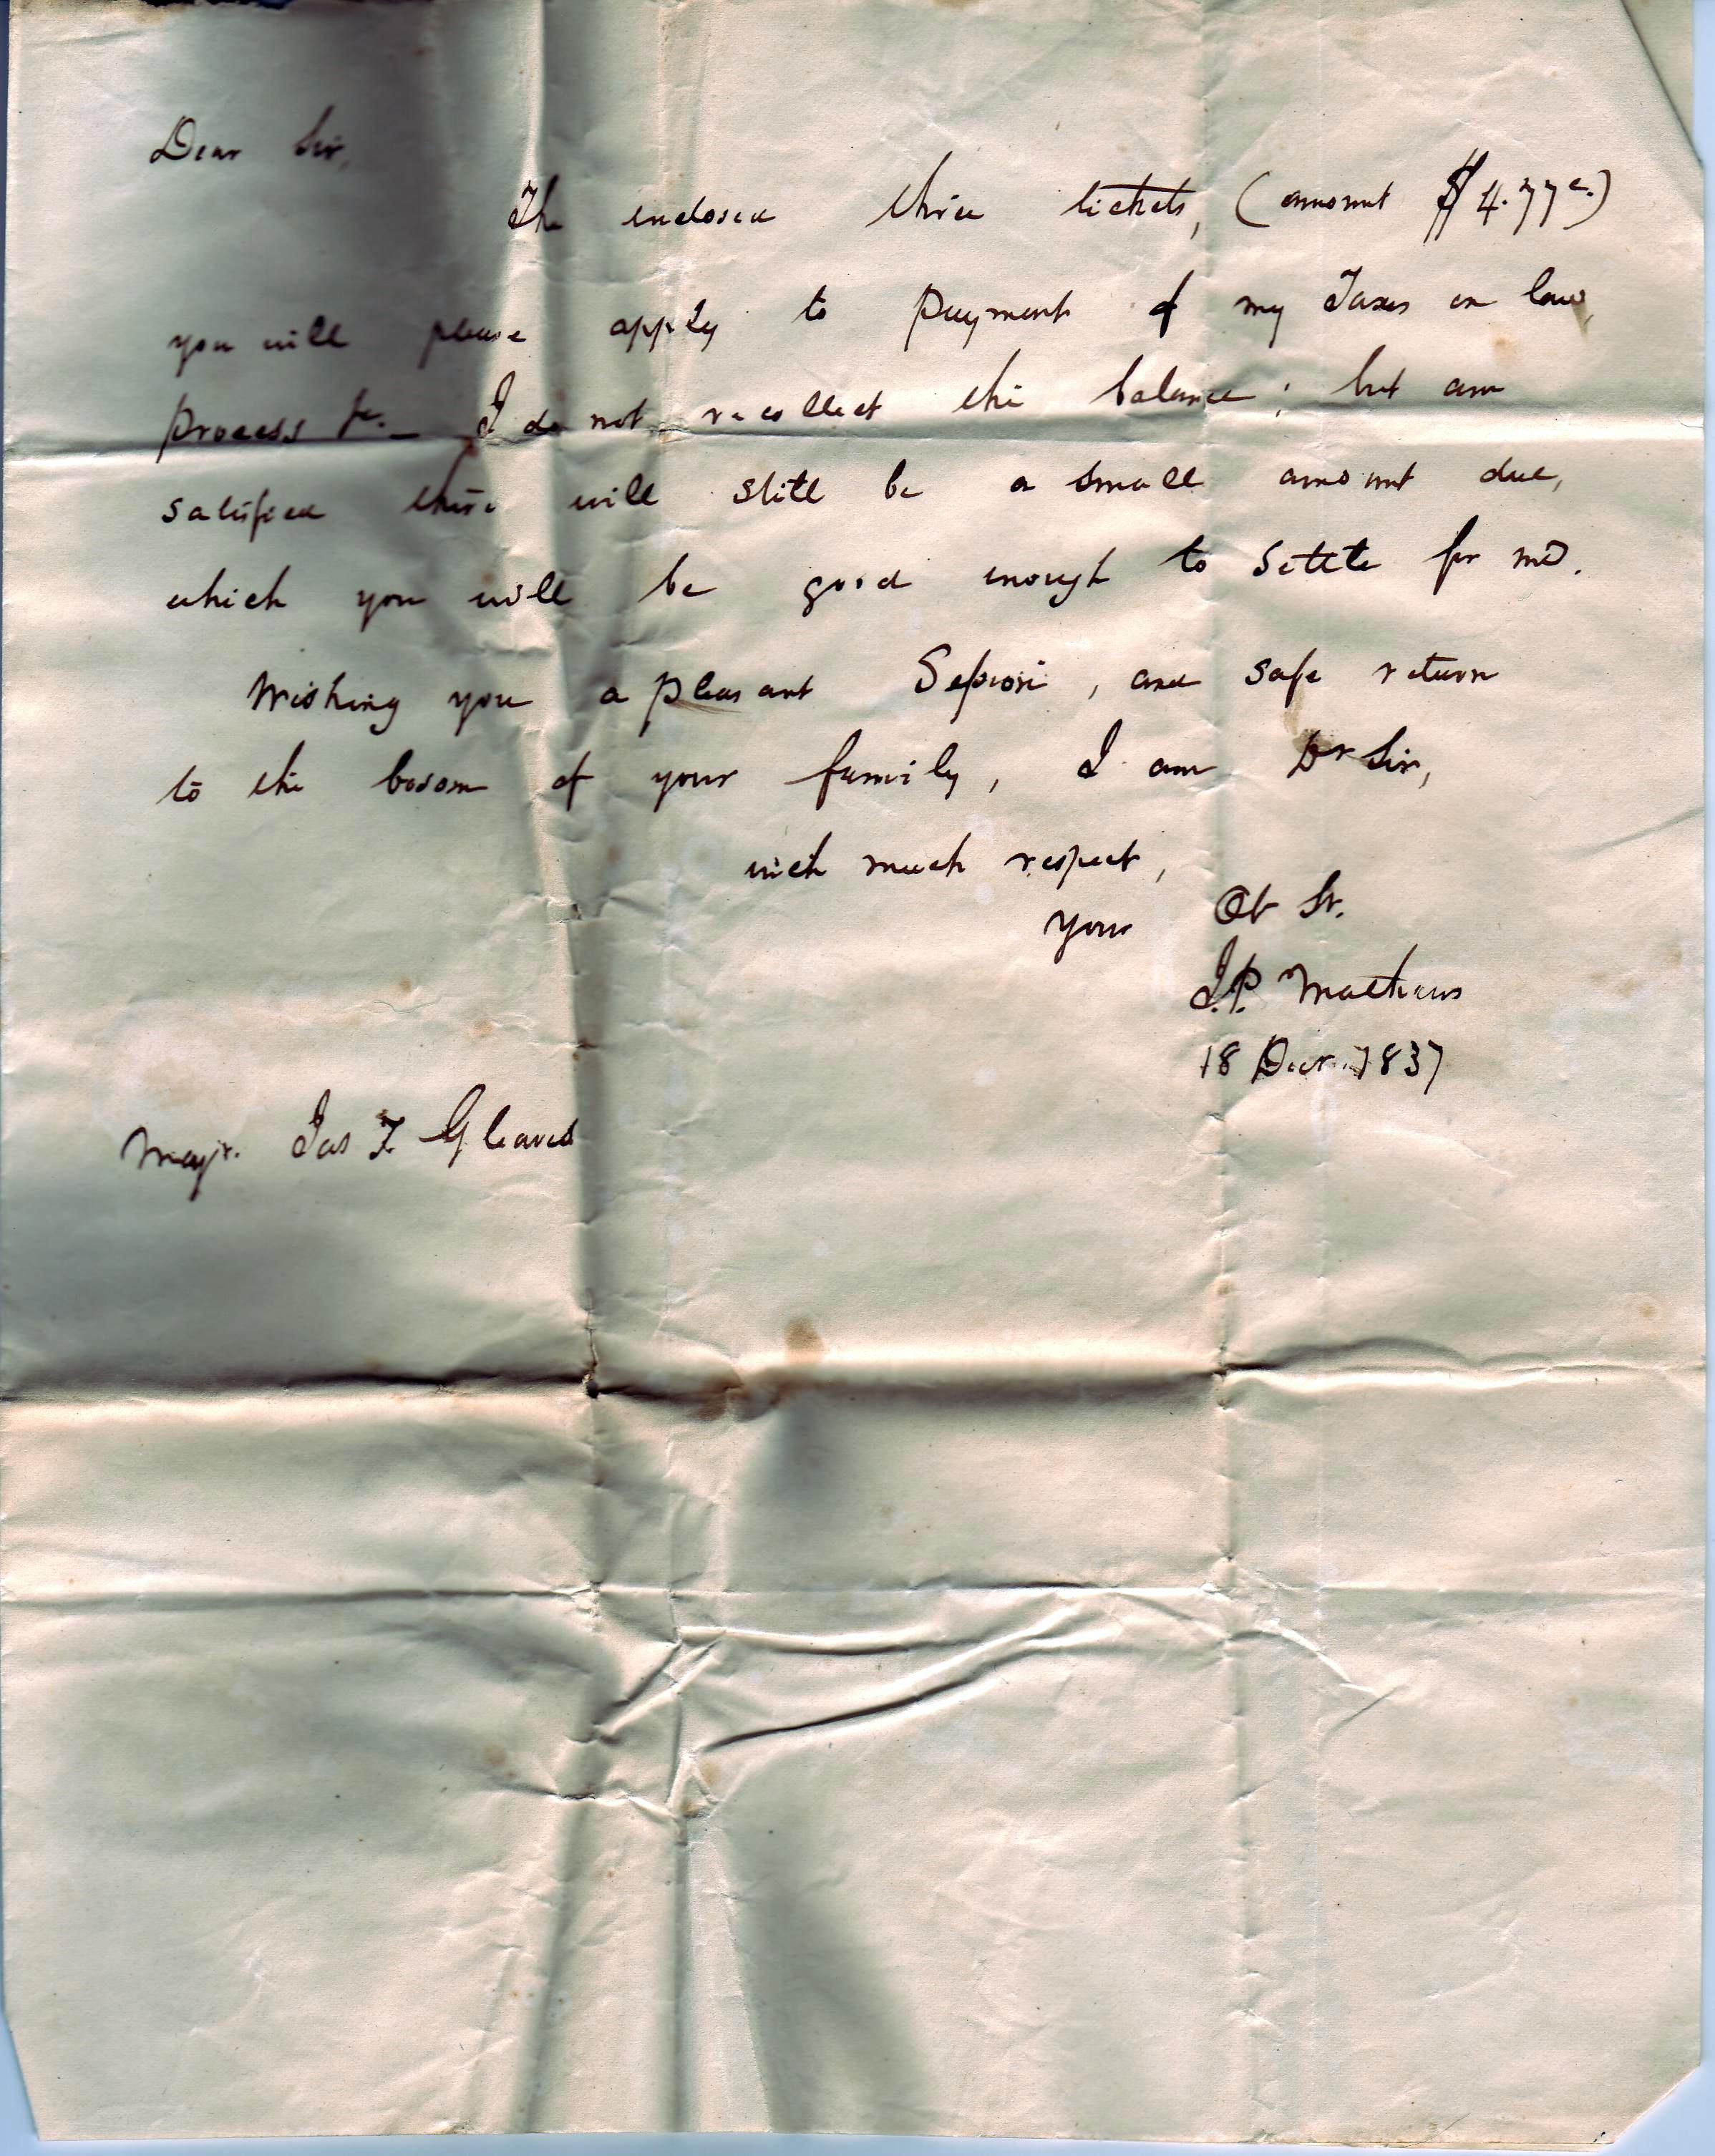 Dear Sir,
The enclosed three tickets, (amount $4.77c.)
you will please apply to payment of my Taxes on law
process &c. _ I do not recollect the balance; but am
satisfied there will still be a small amount due,
which you will be good enough to settle for me.
Wishing you a pleasant Session, and safe return
to the bosom of your family, I am Dr Sir,
with much respect,
your Ob St.
J.P. Mathews
18 Decr. 1837
Majr. Jas T. Gleaves